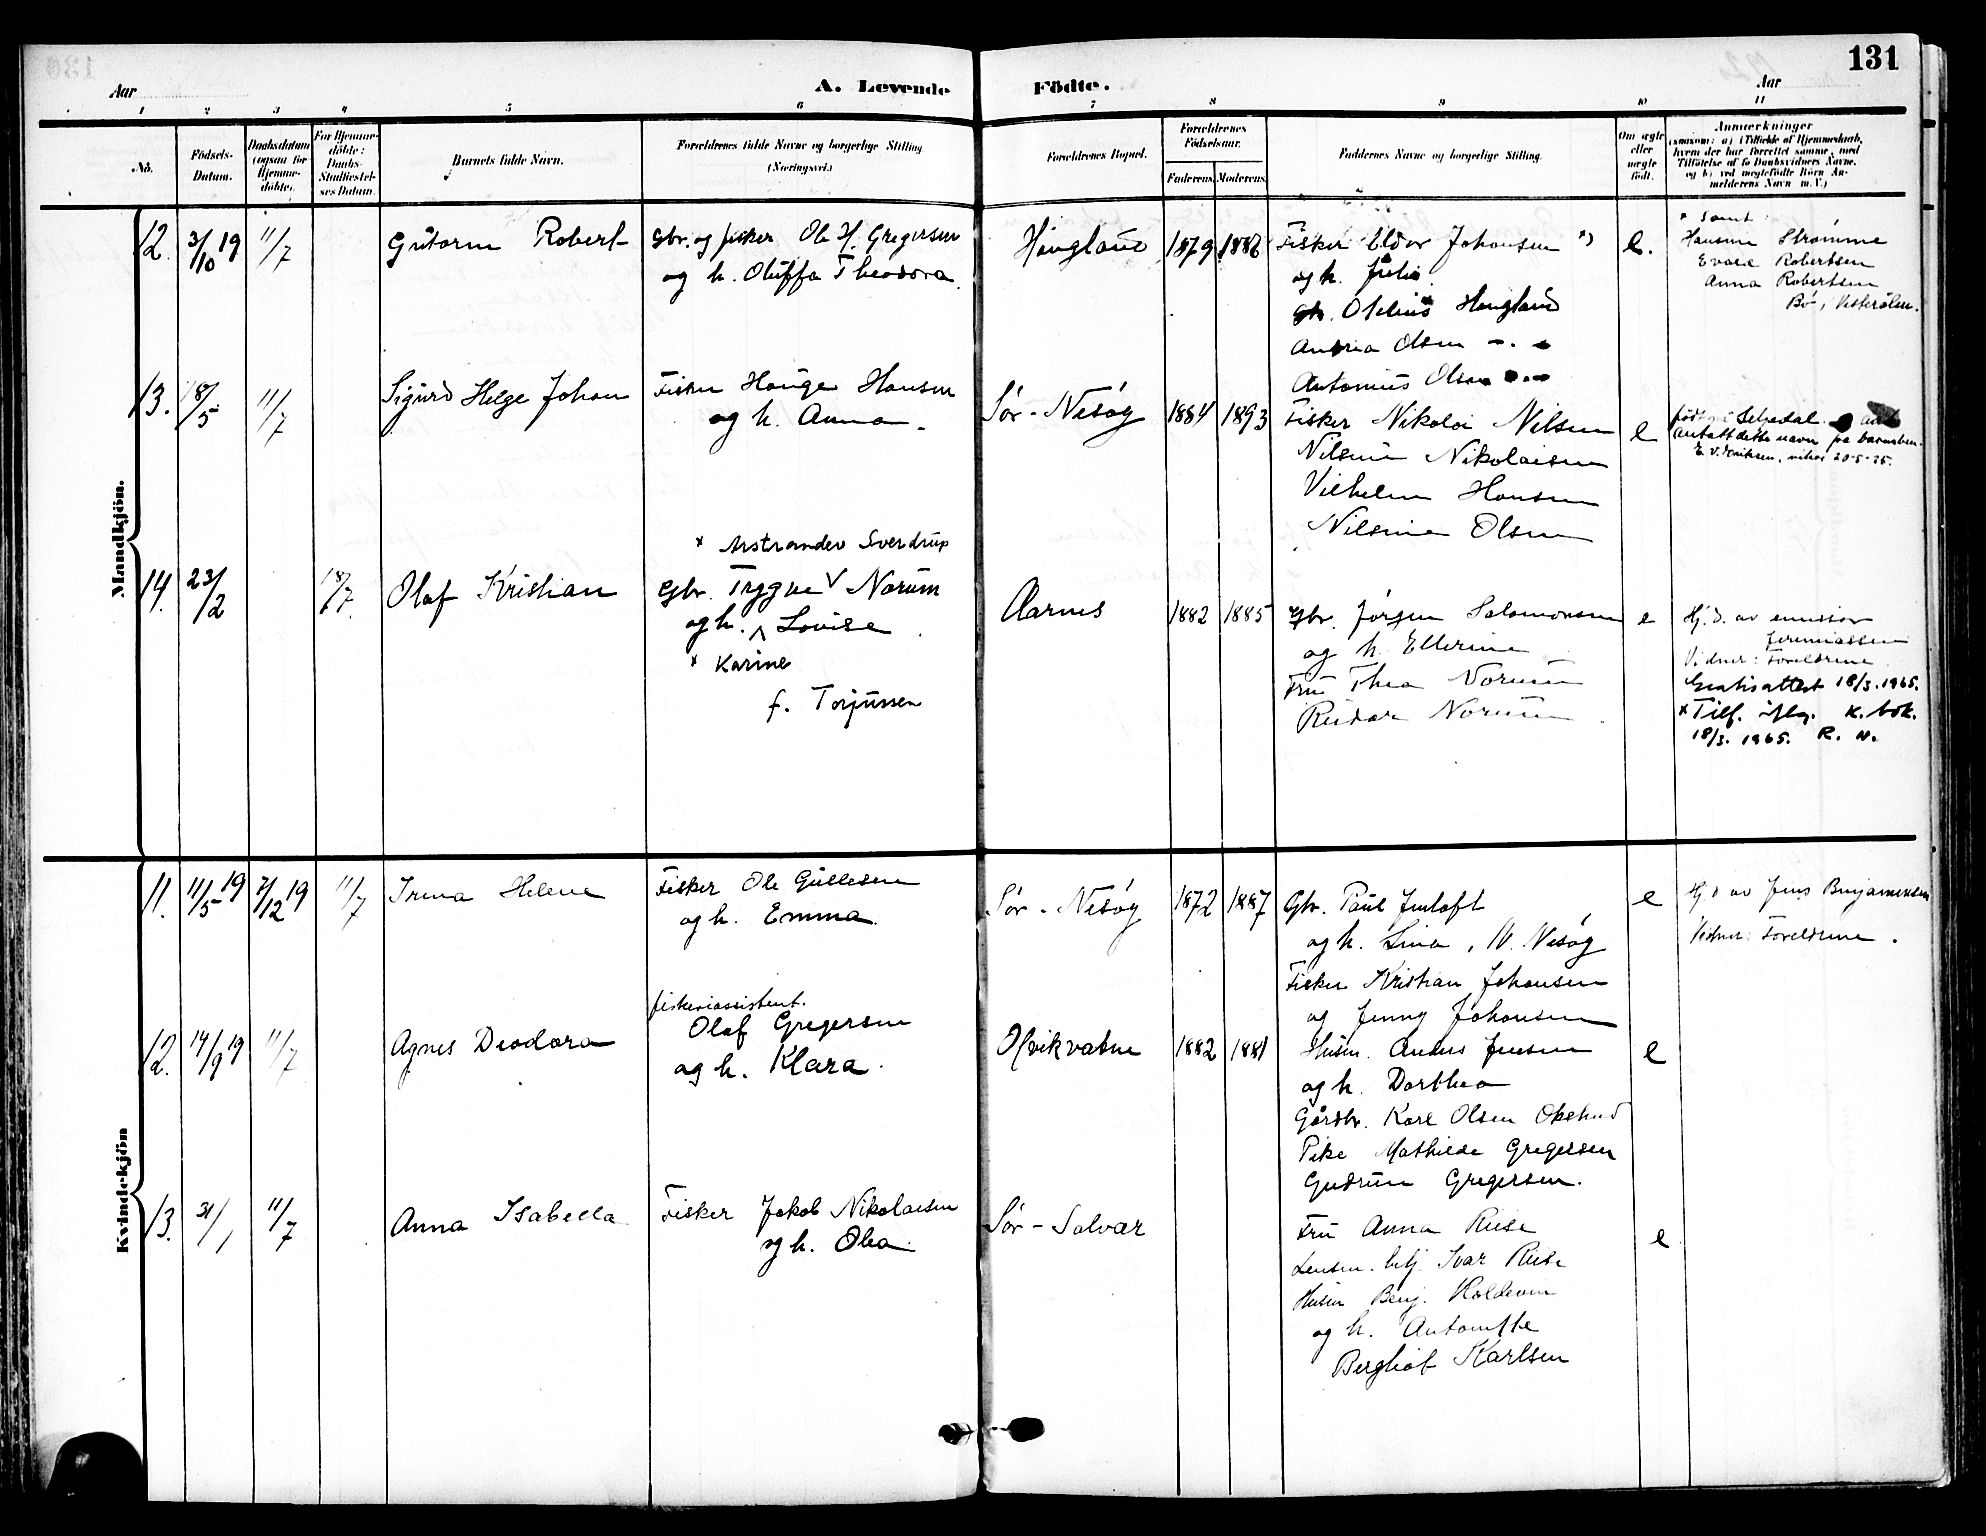 131
Aar
A. Levende
Födte.
Aar
1 2 3 4 5 6 7 8 9 10 11
No.
Födsels-
Datum.
Daabsdatum
(ogsaa for
Hjemme-
döbte).
For Hjemme-
döbte:
Daabs-
Stadfæstel-
ses Datum.
Barnets fulde Navn.
Forældrenes fulde Navne og borgerlige Stilling
(Næringsvei.)
Forældrenes Bopæl.
Forældrenes
Födselsaar.
Faderens. Moderens.
Faddernes Navne og borgerlige Stilling.
Om ægte
eller
uægte
födt.
Anmærkninger
(saasom: a) (Tilfælde af Hjemmedaab,
hvem der har forrettet samme, med
Tilföielse af to Daabsvidners Navne,
og b) ved uægtefödte Börn An-
melderens Navn m. V.)
Mandkjön.
12. 3/10 19 11/7 Guttorm Robert
Gbr. og fisker Ole H. Gregersen
og h. Oluffa Theodora
Haugland 1879 1882
Fisker Eldor Johansen *)
og h. Julie
Otelius Haugland
Andrea Olsen
Antonius Olsen
e.
* samt
Hansine Strømme
Evald Robertsen
Anna Robertsen
Bø, Vesterålen.
13. 18/5 11/7 Sigurd Helge Johan
Fisker Hauger Hansen
og h. Anna.
Sør-Nesøy 1884 1893
Fisker Nikolai Nilsen
Nilsine Nikolaisen
Vilhelm Hansen
Nilsine Olsen
e
Antatt dette navn på barneben.
E. V. Eriksen, 20-5-75.
14. 23/2 18/7 Olaf Kristian
* Arstrander Sverdrup
Gbr. Trygve V Norum
og h. Λ Lovise
* Karine
f. Torjussen
Aarnes 1882 1885
Gbr. Jørgen Salomonsen
og h. Ellerine
Fru Thea Norum
Reidar Norum
e
Hj. d. av emissær
Jeremiassen
Vidner: Foreldrene
Gratisattest 18/3. 1965.
* Tilf. iflg. k. bok.
18/3. 1965. R. N.
Kvindekjön
11. 11/5 19 7/12 19 11/7 Irena Helene
Fisker Ole Gullesen
og h. Emma.
Sør-Nesøy 1872 1887
Gbr. Paul
og h. Lina, N. Nesøy
Fisker Kristian Johansen
og Jenny Johansen
e
Hj d av Jens Benjaminsen
Vidner: Foreldrene.
12. 14/9 19 11/7 Agnes Deodora
fiskeriassistent.
Olaf Gregersen
og h. Klara.
Hvikvatne 1882 1881
Husm. Anders Jensen
og h. Dorthea
Gårdbr. Karl Olsen
Pike Mathilde Gregersen
Gudrun Gregersen.
e
13. 31/1 11/7 Anna Isabella
Fisker Jakob Nikolaisen
og h. Olea
Sør-Solvær
Fru Anna Riise
Lensm. betj. Ivar Riise
Husm Benj. Haldevin
og h. Antonette
Bergliot Karlsen
e